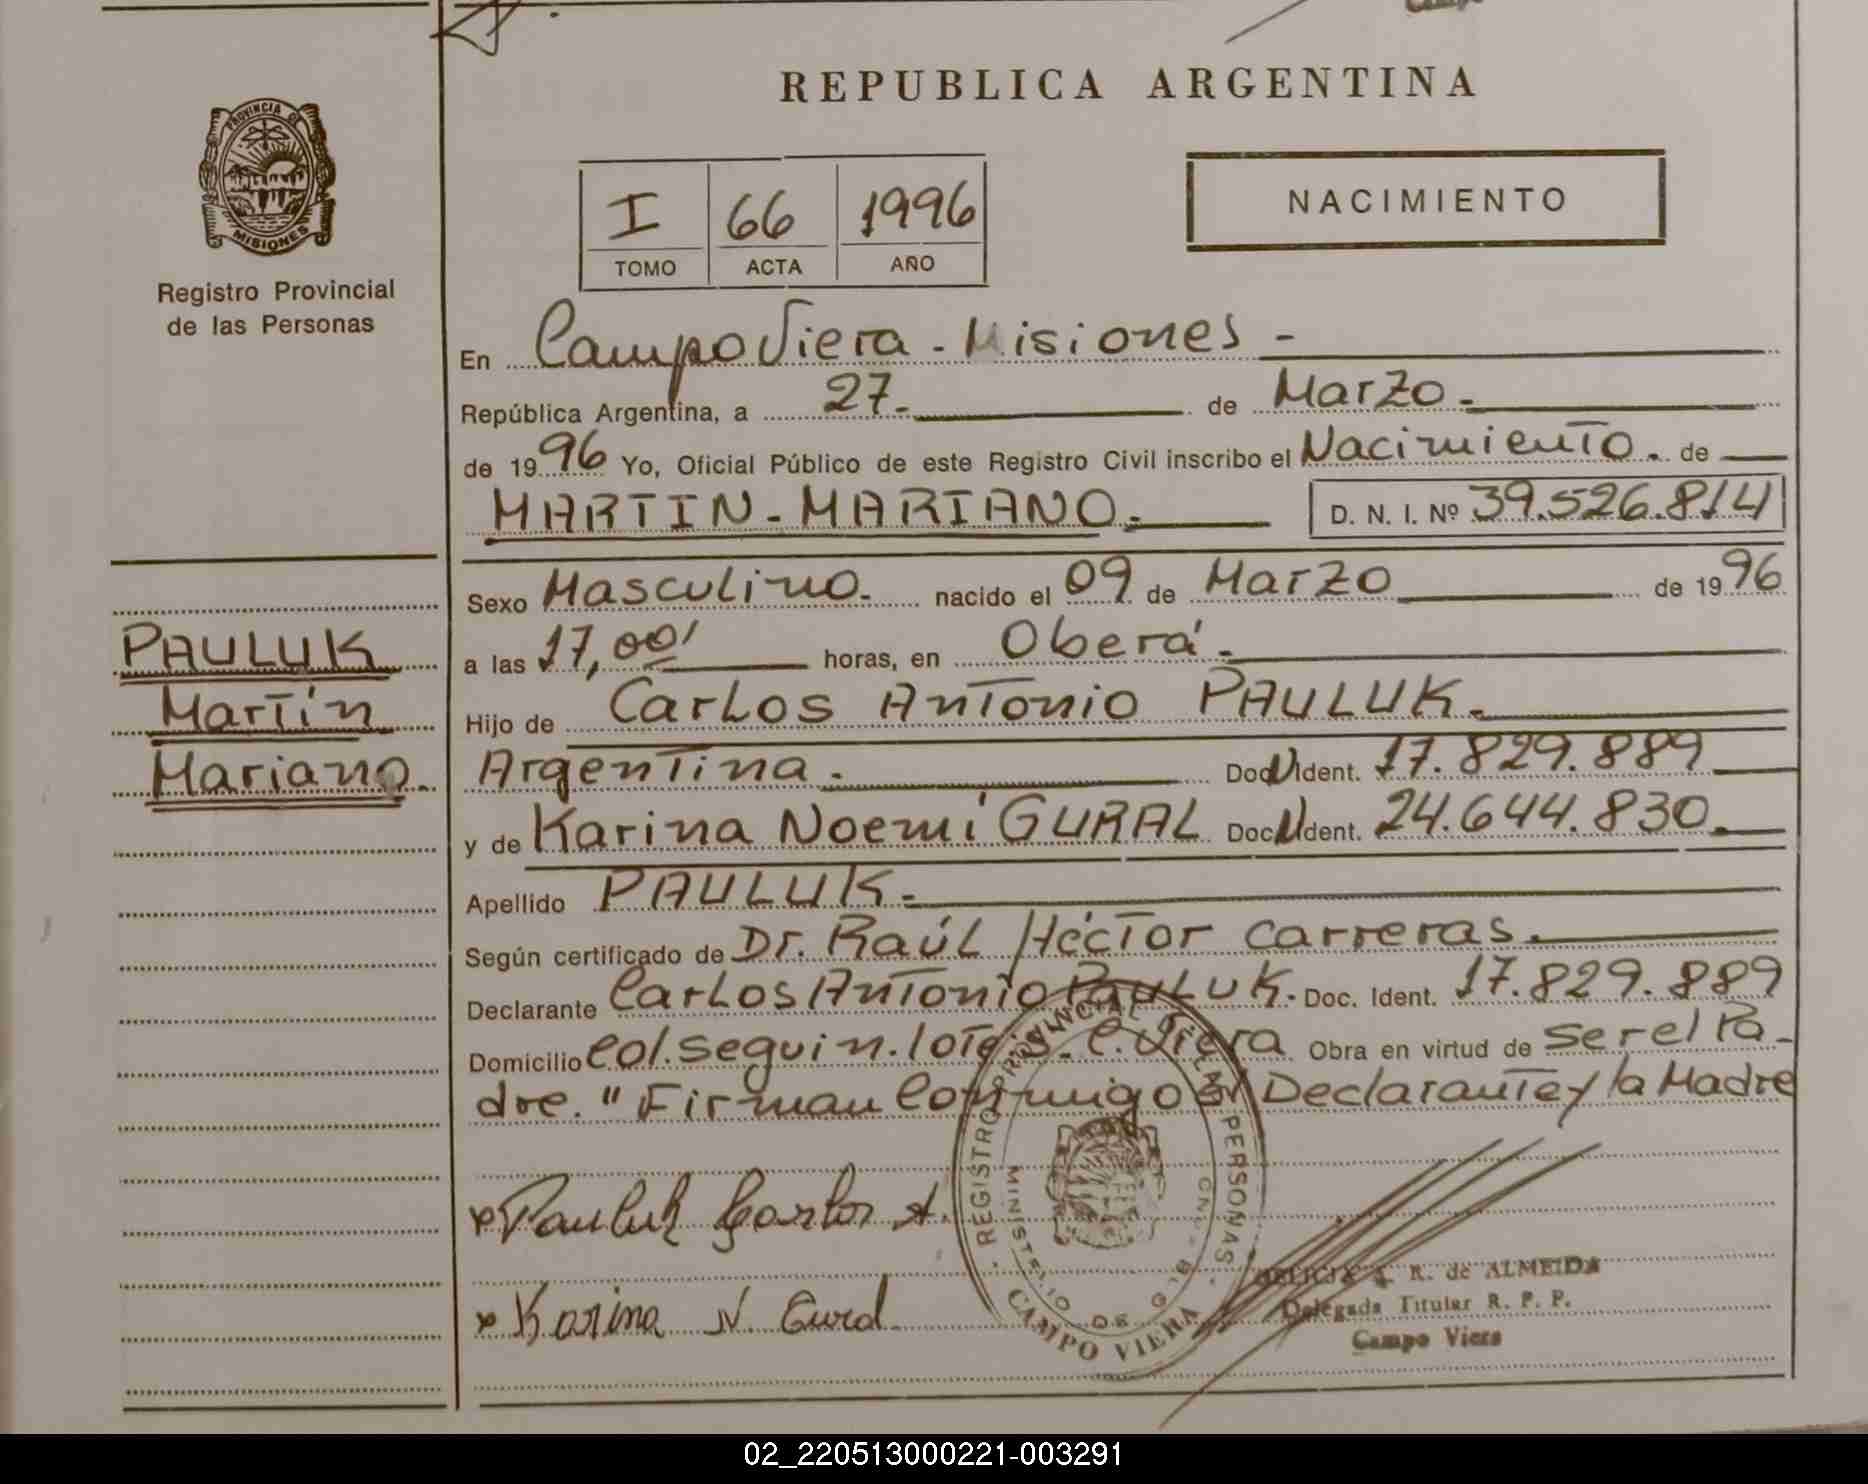 Campo
REPUBLICA ARGENTINA
PROVINCIA DE
MISIONES
Registro Provincial
de las Personas
I 66 1996
TOMO ACTA AÑO
NACIMIENTO
En Campo Viera - Misiones -
República Argentina, a 27. de Marzo.
de 1996 Yo, Oficial Público de este Registro Civil inscribo el Nacimiento. de
MARTIN-MARIANO. D. N. I. Nº 39.526.814
PAULUK
Martín
Mariano.
Sexo Masculino. nacido el 09 de Marzo de 1996
a las 17,00' horas, en Oberá.
Hijo de Carlos Antonio PAULUK.
Argentina. Doc. Ident. 17.829.889
y de Karina Noemí GURAL Doc. Ident. 24.644.830.
Apellido PAULUK.
Según certificado de Dr. Raúl Héctor Carreras.
Declarante Carlos Antonio Pauluk. Doc. Ident. 17.829.889
Domicilio Col. seguin. lote C. Viera Obra en virtud de ser el Pa-
dre. " Firman Conmigo el Declarante y la Madre
Pauluk Carlos A.
Karina N. Gural
REGISTRO PROVINCIAL DE LAS PERSONAS
MINISTERIO DE GOB
CAMPO VIERA
R. de ALMEIDA
Delegada Titular R. P. P.
Campo Viera
02_220513000221-003291